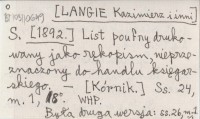 [LANGIE Kazimierz i inni]
S. [1892.] List poufny druko-
wany jako rękopism, nieprze-
znaczony do handlu księgar-
skiego. — [Kórnik.] Ss. 24,
m. 1, 8° WHP.
Była druga wersja: ss. 26, m. 1